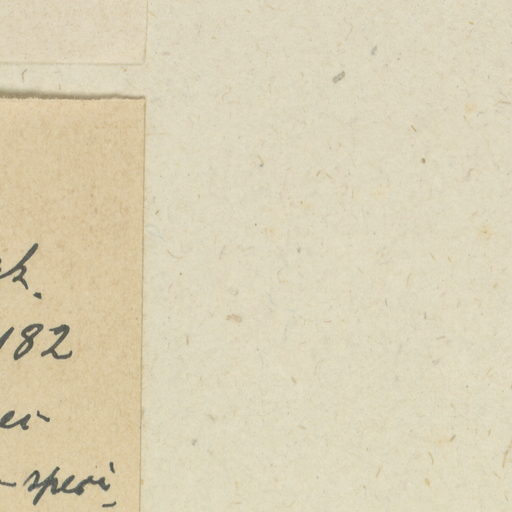 182
ei-
-speri-